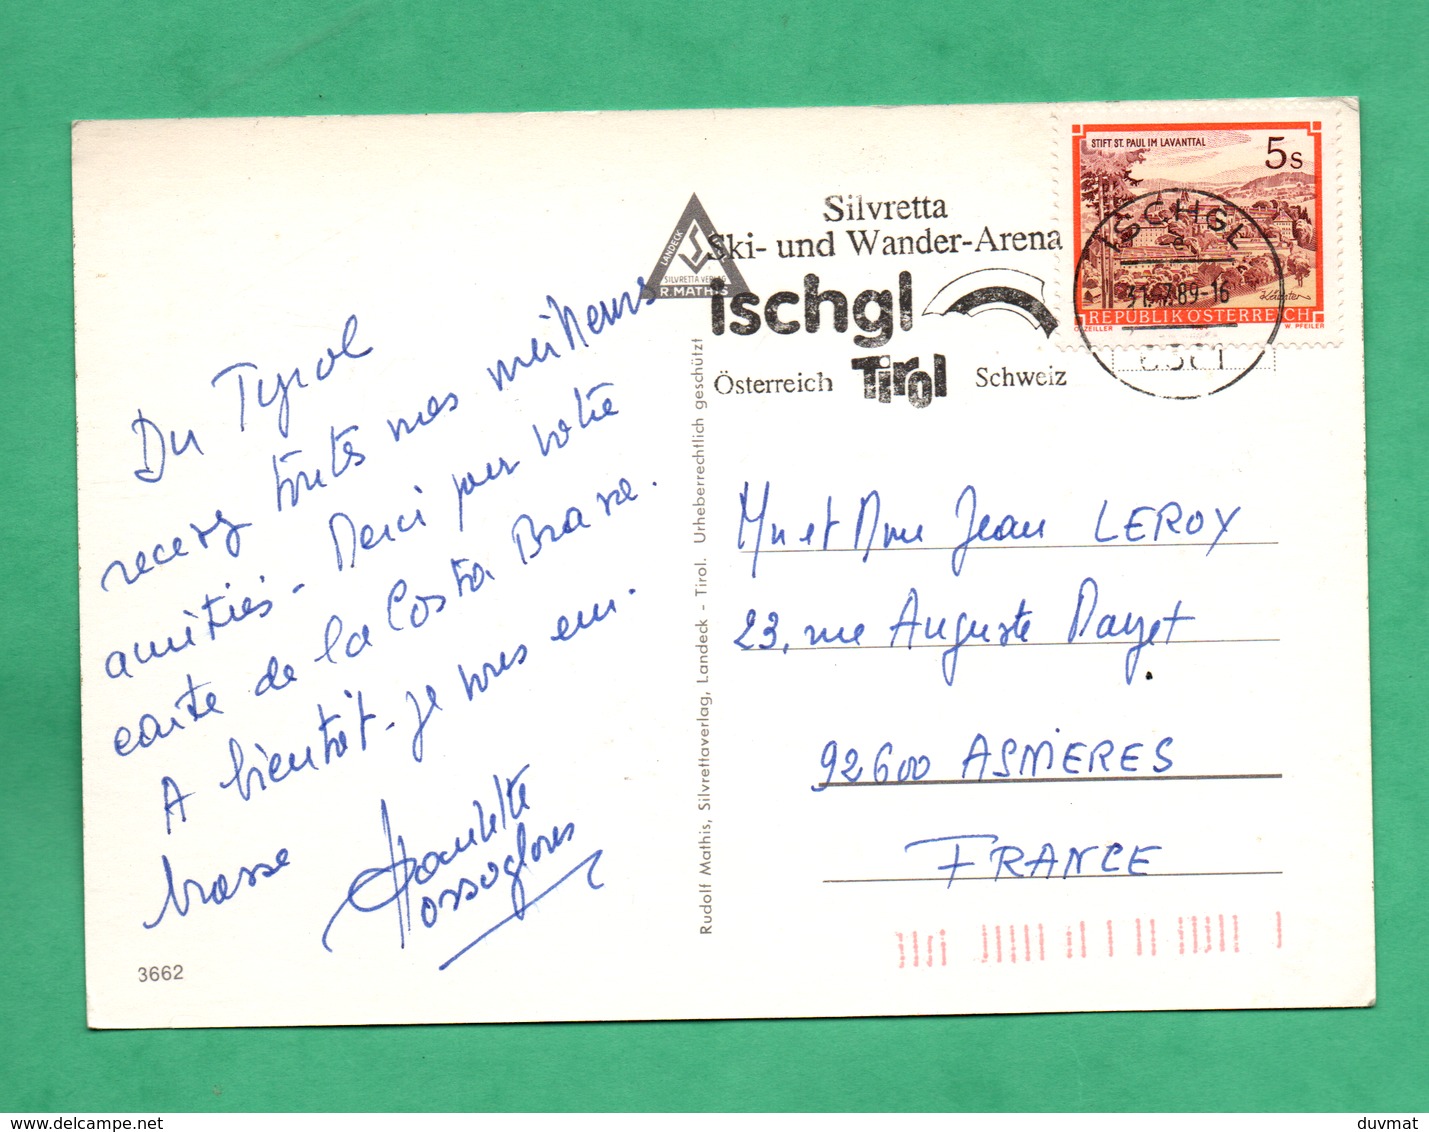 Du Tyrol
recevez toutes mes meilleures
amitiés - Merci pour votre
carte de la Costa Brava.
A bientôt - je vous em-
brasse
3662
Rudolf Mathis, Silvrettaverlag, Landeck - Tirol. Urheberrechtlich geschützt
LANDECK
SILVRETTA VERLAG
R. MATHIS
Silvretta
Ski- und Wander-Arena
ischgl
Österreich Tirol Schweiz
STIFT ST. PAUL IM LAVANTTAL
5 s
REPUBLIK ÖSTERREICH
O. ZEILLER W. PFEILER
ISCHGL
31.7.89-16
Mr et Mme Jean LEROY
23, rue Auguste Bayet
92600 ASNIERES
FRANCE
delcampe.net
duvmat